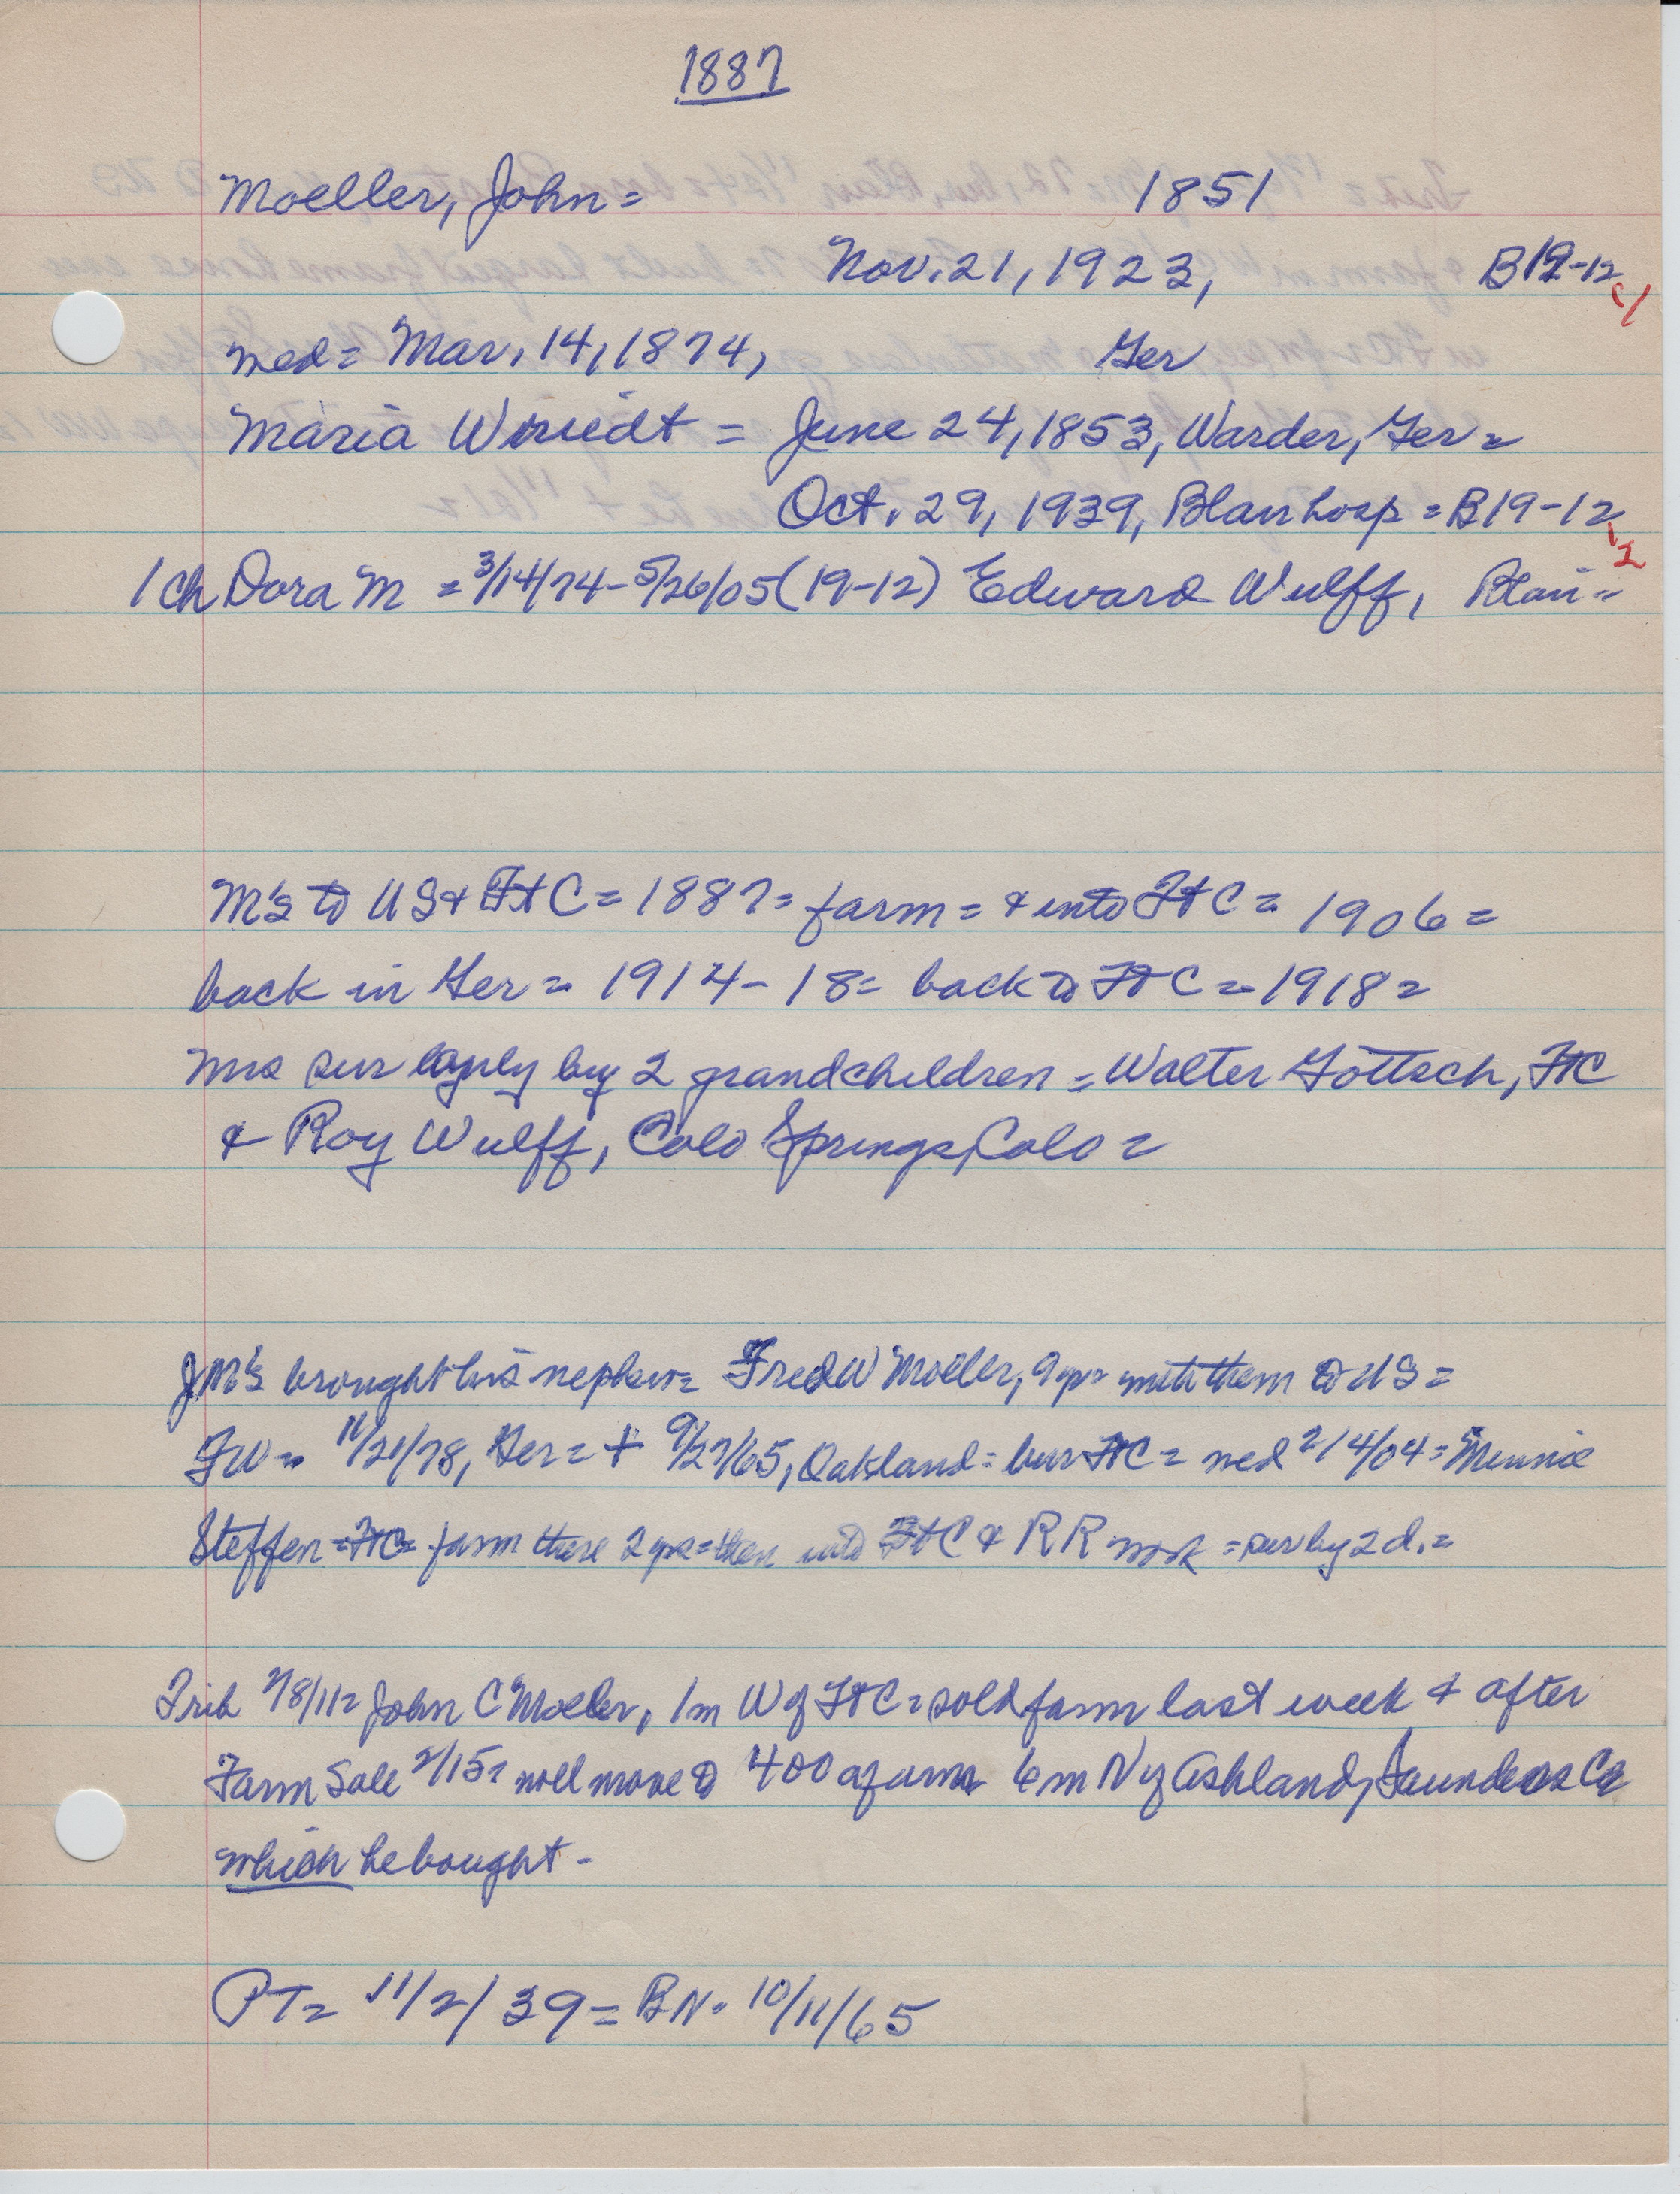 1887
Moeller, John = 1851
Nov. 21, 1923, B19-12
/1
med = Mar. 14, 1874, Ger
Maria Wriedt = June 24, 1853, Warder, Ger =
Oct. 29, 1939, Blair hosp = B19-12
12
1 ch Dora M = 3/14/74 - 5/26/05 (19-12) Edward Wulff, Blair =
M's to US & FtC = 1887 = farm = & into FtC = 1906 =
back in Ger = 1914 - 18 = back to FtC = 1918 =
Mrs sur only by 2 grandchildren = Walter Göttsch, FtC
& Roy Wulff, Colo Springs, Colo =
JM's brought his nephew = Fred W Moeller, 9 yr with them to US =
FW = 11/21/78, Ger = + 9/27/65, Oakland = bur FtC = med 2/4/04 = Minnie
Steffen = FtC = farm there 2 yrs = then into FtC & RR work = sur by 2 d. =
Trib 2/8/11 = John C Moeller, 1 m W of FtC = sold farm last week & after
Farm Sale 2/15 = will move to 400 a farm 6 m N of Ashland, Saunders Co
which he bought -
PT = 11/2/39 = BN = 10/11/65